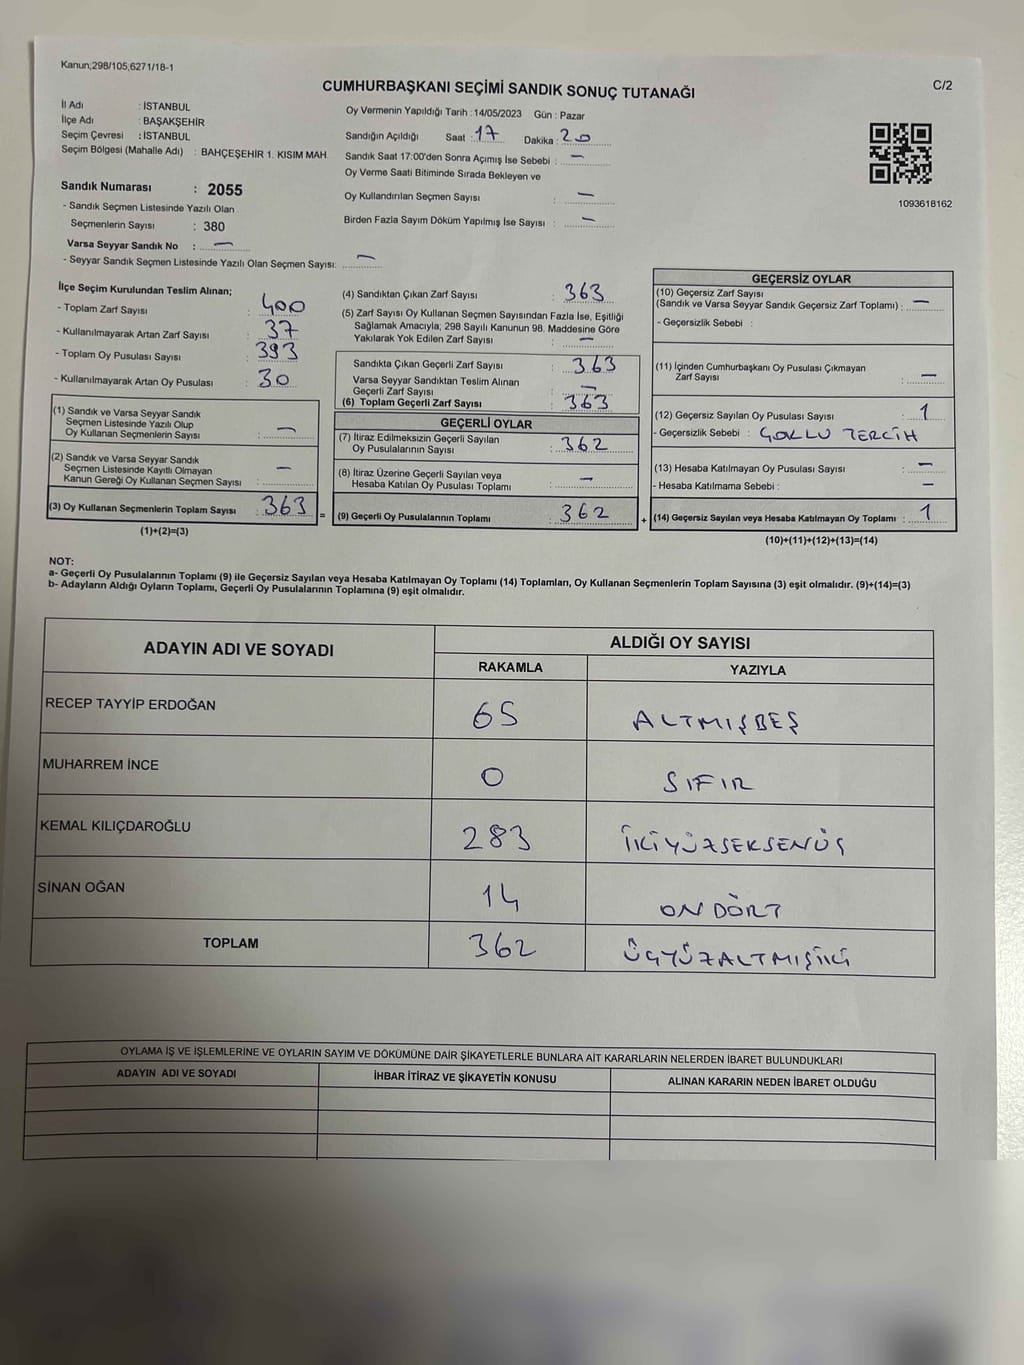 Kanun;298/105;6271/18-1
CUMHURBAŞKANI SEÇİMİ SANDIK SONUÇ TUTANAĞI
C/2
İl Adı : İSTANBUL
İlçe Adı : BAŞAKŞEHİR
Seçim Çevresi : İSTANBUL
Seçim Bölgesi (Mahalle Adı) : BAHÇEŞEHİR 1. KISIM MAH.
Sandık Numarası : 2055
- Sandık Seçmen Listesinde Yazılı Olan
Seçmenlerin Sayısı : 380
Varsa Seyyar Sandık No : —
- Seyyar Sandık Seçmen Listesinde Yazılı Olan Seçmen Sayısı: —
Oy Vermenin Yapıldığı Tarih : 14/05/2023 Gün : Pazar
Sandığın Açıldığı Saat : 17 Dakika : 20
Sandık Saat 17:00'den Sonra Açımış İse Sebebi : —
Oy Verme Saati Bitiminde Sırada Bekleyen ve
Oy Kullandırılan Seçmen Sayısı : —
Birden Fazla Sayım Döküm Yapılmış İse Sayısı : —
1093618162
İlçe Seçim Kurulundan Teslim Alınan;
- Toplam Zarf Sayısı : 400
- Kullanılmayarak Artan Zarf Sayısı : 37
- Toplam Oy Pusulası Sayısı : 393
- Kullanılmayarak Artan Oy Pusulası : 30
(1) Sandık ve Varsa Seyyar Sandık
Seçmen Listesinde Yazılı Olup
Oy Kullanan Seçmenlerin Sayısı : —
(2) Sandık ve Varsa Seyyar Sandık
Seçmen Listesinde Kayıtlı Olmayan
Kanun Gereği Oy Kullanan Seçmen Sayısı : —
(3) Oy Kullanan Seçmenlerin Toplam Sayısı : 363 =
(1)+(2)=(3)
(4) Sandıktan Çıkan Zarf Sayısı : 363
(5) Zarf Sayısı Oy Kullanan Seçmen Sayısından Fazla İse, Eşitliği
Sağlamak Amacıyla; 298 Sayılı Kanunun 98. Maddesine Göre
Yakılarak Yok Edilen Zarf Sayısı : —
Sandıkta Çıkan Geçerli Zarf Sayısı : 363
Varsa Seyyar Sandıktan Teslim Alınan
Geçerli Zarf Sayısı : —
(6) Toplam Geçerli Zarf Sayısı : 363
GEÇERLİ OYLAR
(7) İtiraz Edilmeksizin Geçerli Sayılan
Oy Pusulasının Sayısı : 362
(8) İtiraz Üzerine Geçerli Sayılan veya
Hesaba Katılan Oy Pusulası Toplamı : —
(9) Geçerli Oy Pusulalarının Toplamı : 362 +
GEÇERSİZ OYLAR
(10) Geçersiz Zarf Sayısı
(Sandık ve Varsa Seyyar Sandık Geçersiz Zarf Toplamı) : —
- Geçersizlik Sebebi :
(11) İçinden Cumhurbaşkanı Oy Pusulası Çıkmayan
Zarf Sayısı : —
(12) Geçersiz Sayılan Oy Pusulası Sayısı : 1
- Geçersizlik Sebebi : ÇOKLU TERCİH
(13) Hesaba Katılmayan Oy Pusulası Sayısı : —
- Hesaba Katılmama Sebebi : —
(14) Geçersiz Sayılan veya Hesaba Katılmayan Oy Toplamı : 1
(10)+(11)+(12)+(13)=(14)
NOT:
a- Geçerli Oy Pusulalarının Toplamı (9) ile Geçersiz Sayılan veya Hesaba Katılmayan Oy Toplamı (14) Toplamları, Oy Kullanan Seçmenlerin Toplam Sayısına (3) eşit olmalıdır. (9)+(14)=(3)
b- Adayların Aldığı Oyların Toplamı, Geçerli Oy Pusulalarının Toplamına (9) eşit olmalıdır.
ADAYIN ADI VE SOYADI
ALDIĞI OY SAYISI
RAKAMLA YAZIYLA
RECEP TAYYİP ERDOĞAN 65 ALTMIŞBEŞ
MUHARREM İNCE 0 SIFIR
KEMAL KILIÇDAROĞLU 283 İKİYÜZSEKSENÜÇ
SİNAN OĞAN 14 ONDÖRT
TOPLAM 362 ÜÇYÜZALTMIŞİKİ
OYLAMA İŞ VE İŞLEMLERİNE VE OYLARIN SAYIM VE DÖKÜMÜNE DAİR ŞİKAYETLERLE BUNLARA AİT KARARLARIN NELERDEN İBARET BULUNDUKLARI
ADAYIN ADI VE SOYADI İHBAR İTİRAZ VE ŞİKAYETİN KONUSU ALINAN KARARIN NEDEN İBARET OLDUĞU